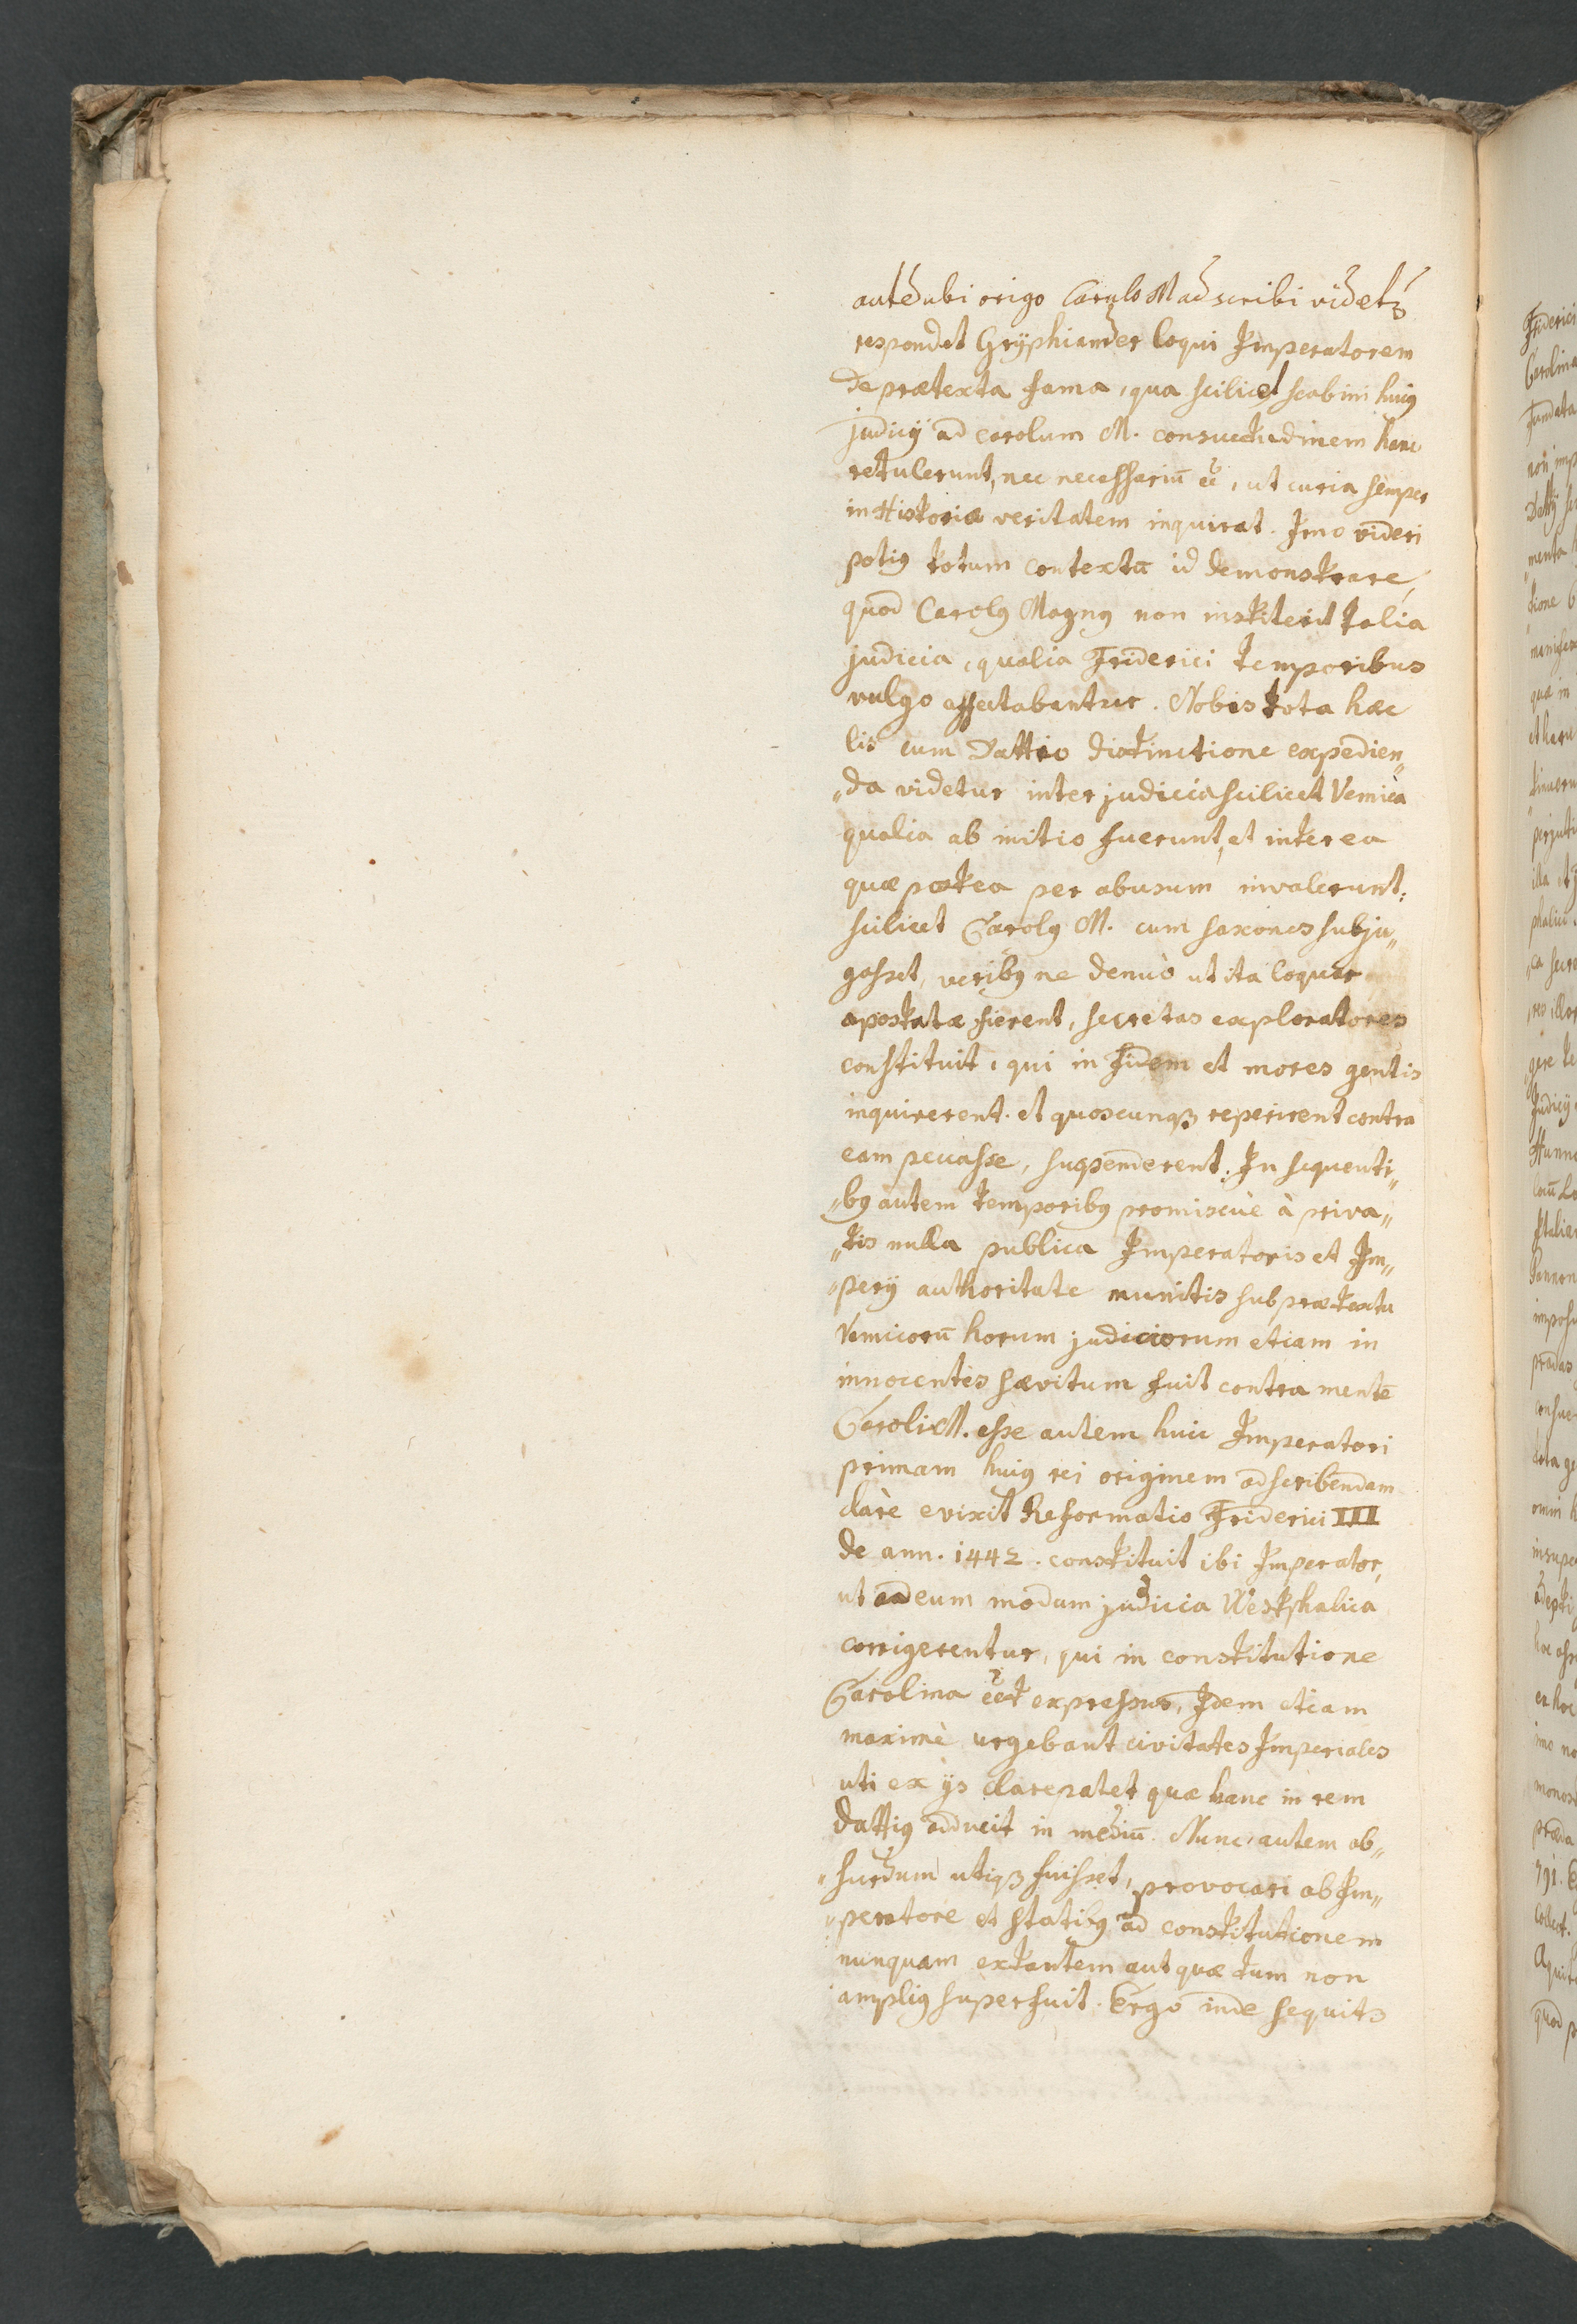 autē ubi origo Carolo M adscribi videtꝫ
respondet Grÿphiander loqui Imperatorem
de prætexta fama, qua scilicet scabini huiꝰ
judicÿ ad Carolum M. consuetudinem hanc
retulerunt, nec necessariū ēē, ut curia semper
in Historiæ veritatem inquirat. Imo videri
potiꝰ totum contextū id demonstrare,
quod Carolꝰ Magnꝰ non institerit talia
judicia, qualia Friderici temporibus
vulgo affectabantur. Nobis tota hæc
lis cum Dattio distinctione expedien„
„da videtur inter judicia scilicet Vemica
qualia ab initio fuerunt, et inter ea
quæ postea per abusum invalerunt:
scilicet Carolꝰ M. cum saxones subju„
gasset, veribꝰ ne denuò ut ita loquar
apostatæ fierent, secretas exploratores
constituit, qui in fidem et mores gentis
inquirerent. et quoscunqꝫ reperirent contra
eam peccasse, suspenderent. In sequenti„
„bꝰ autem temporibꝰ promiscuè à priva„
„tis nulla publica Imperatoris et Im„
„perÿ authoritate munitis sub prætextu
Vemicorū horum judiciorum etiam in
innocentes sævitum fuit contra mentē
Caroli M. esse autem huic Imperatori
primam huiꝰ rei originem adscribendam
clarè evixit Reformatio Friderici III
de ann. 1442. constituit ibi Imperator,
ut ad eum modum judicia Westphalica
corrigerentur, qui in constitutione
Carolina ēēt expressus, Idem etiam
maximè urgebant civitates Imperiales
uti ex ÿs clare patet quæ hanc in rem
Dattiꝰ adducit in mediū. Nunc autem ab„
„surdum utiqꝫ fuisset, provocari ab Im„
„peratore et statibꝰ ad constitutionem
nunquam extantem aut quæ tum non
ampliꝰ superfuit. Ergo inde sequitꝫ